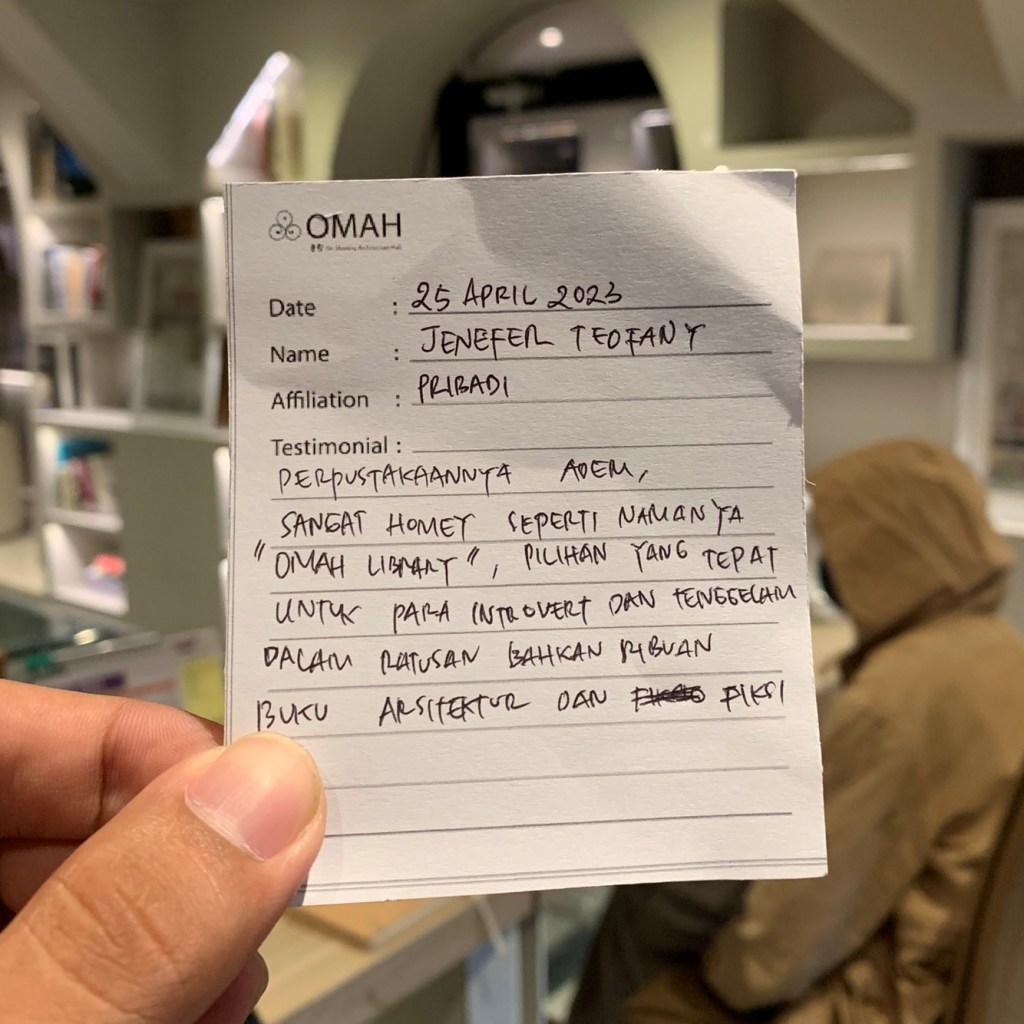 OMAH
Date : 25 APRIL 2023
Name : JENEFER TEOFANY
Affiliation : PRIBADI
Testimonial :
PERPUSTAKAANNYA ADEM,
SANGAT HOMEY SEPERTI NAMANYA
"OMAH LIBRARY", PILIHAN YANG TEPAT
UNTUK PARA INTROVERT DAN TENGGELAM
DALAM RATUSAN BAHKAN RIBUAN
BUKU ARSITEKTUR DAN FIKSI